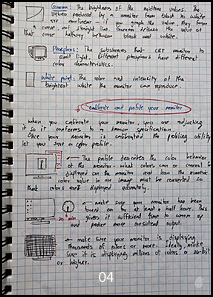 Gamma: The brightness of the midtone values. The
values produced by a monitor from black to white
are nonlinear. If you graph the values they form
curve, not straight line. Gamma defines the value of
that curve halfway between black and white.
Phosphors: The substance that CRT monitor to
emit light. Different phosphors have different
color characteristics.
White point: The color and intensity of the
brightest white the monitor can reproduce.
Calibrate and profile your monitor
When you calibrate your monitor, you are adjusting
it so it conforms to a known specification.
Once your monitor is calibrated the profiling utility
let you save a color profile.
The profile describes the color behavior
of the monitor: what colors can or cannot
displayed on the monitor and how the numeric
color values in an image must be converted so
that colors are displayed accurately.
make sure your monitor has been
turned on for at least a half hour. This
gives it sufficient time to warm up
and produce more consistent output.
30 min
make sure your monitor is displaying
thousands of colors or more. Ideally make
sure it is displaying millions of colors or 24-bit
or higher.
04